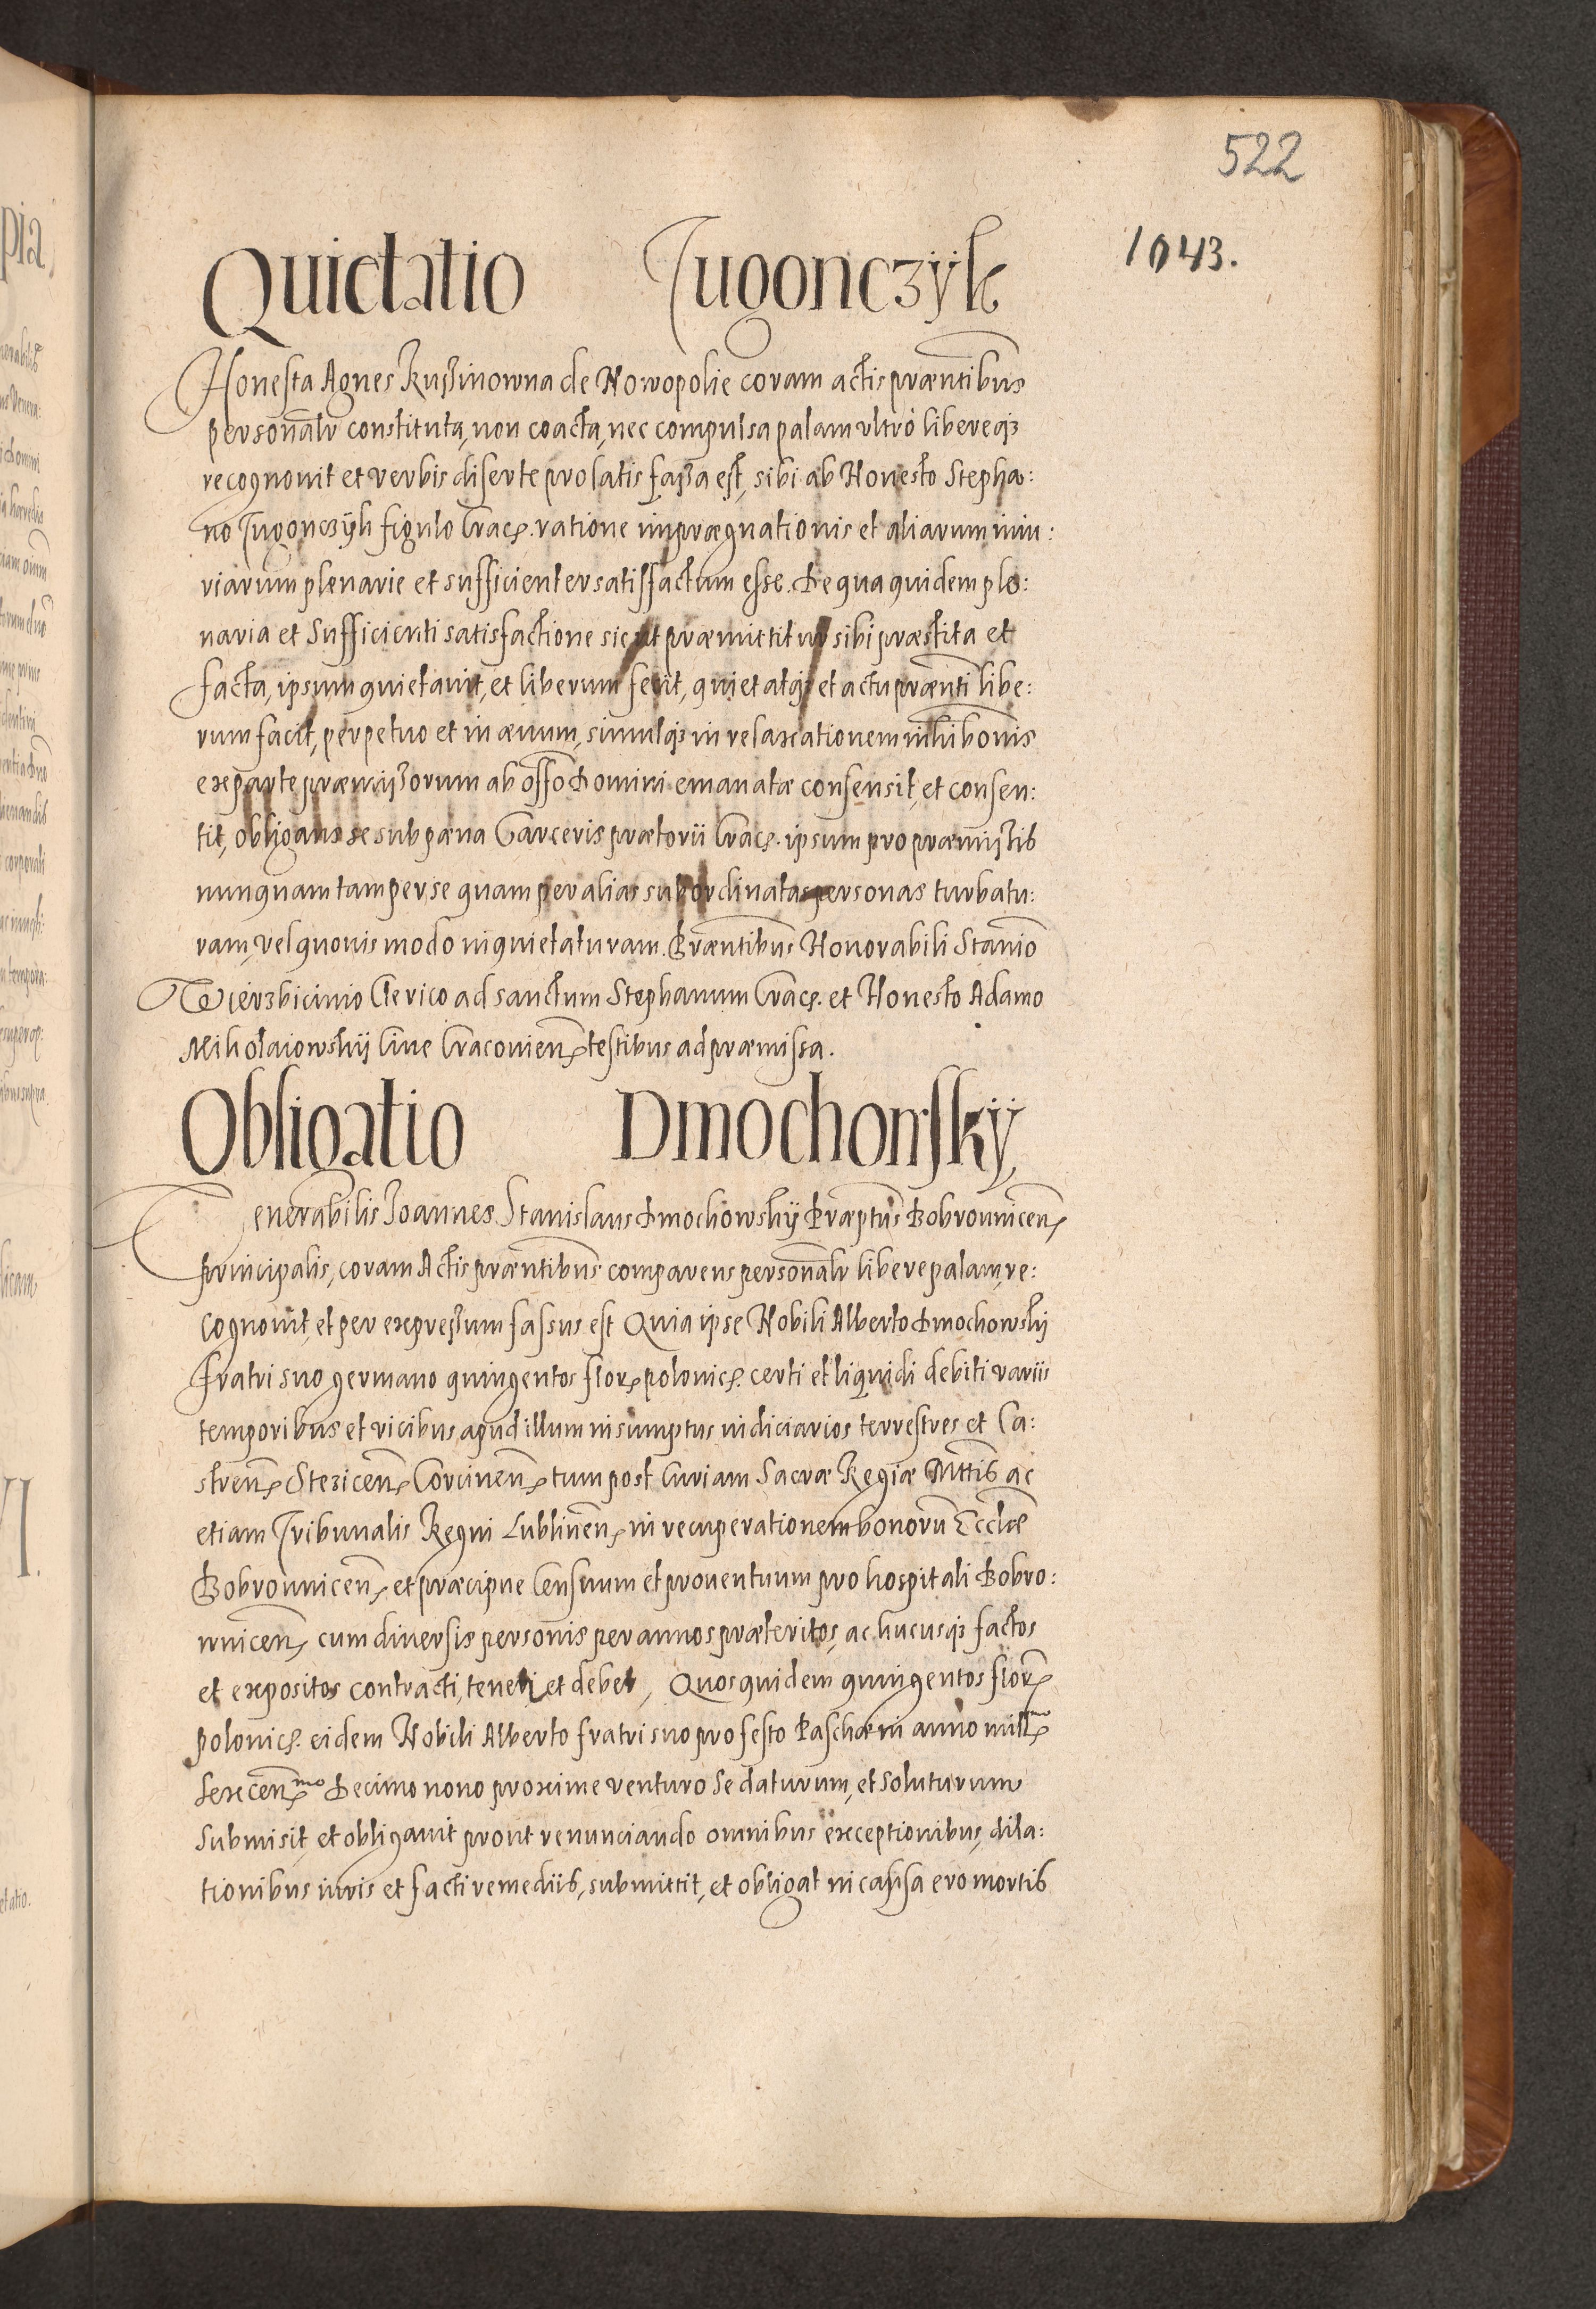 522
1043.
Quietatio Jugonczÿk
Honesta Agnes Kusżinowna de Nowopolie coram actis præntibus
personalr constituta, non coacta, nec compulsa palam ultrò libereqz
recognouit et verbis diserte prolatis faßa est, sibi ab Honesto Stepha:
no Jugonczÿk figulo Crac. ratione imprægnationis et aliarum iniu:
riarum plenarie et sufficienter satisfactum esse. De qua quidem ple:
naria et sufficienti satisfactione sicut præmittitur sibi præstita et
facta, ipsum quietauit, et liberum fecit, quietatqz et actu prænti libe:
rum facit, perpetuo et in æuum, simulqz in relaxationem inhibonis
ex parte præmißorum ab offo Domini emanatæ consensit, et consen:
tit, obligans se sub pæna Carceris prætorii Crac. ipsum pro præmißis
nunquam tam per se quam per alias subordinatas personas turbatu:
ram, vel quouis modo inquietaturam. Præntibus Honorabili Stanio
Wierzbicinio Clerico ad sanctum Stephanum Crac. et Honesto Adamo
Mikolaiowskÿ Ciue Cracouien testibus ad præmissa.
Obligatio Dmochowskÿ
Venerabilis Joannes Stanislaus Dmochowskÿ Præptus Bobrownicen
principalis, coram Actis præntibus comparens personalr libere palam, re:
cognouit, et per expreßum fassus est Quia ipse Nobili Alberto Dmochowskÿ
fratri suo germano quingentos flor polonic. certi et liquidi debiti variis
temporibus et vicibus apud illum in sumptus iudiciarios terrestres et Ca:
stren Stezicen Corcinen tum post Curiam Sacræ Regiæ Mttis ac
etiam Tribunalis Regni Lublinen in recuperationem bonoru Eccliæ
Bobrownicen, et præcipue Censuum et prouentuum pro hospitali Bobro:
wnicen, cum diuersis personis per annos præteritos, ac hucusqz factos
et expositos contracti, teneri et debet, Quos quidem quingentos flor
polonic. eidem Nobili Alberto fratri suo pro festo Paschæ in anno millmo
sexcenmo Decimo nono proxime venturo se daturum, et soluturum
submisit et obligauit prout renunciando omnibus exceptionibus, dila:
tionibus iuris et facti remediis, submittit, et obligat in caussa ero mortis